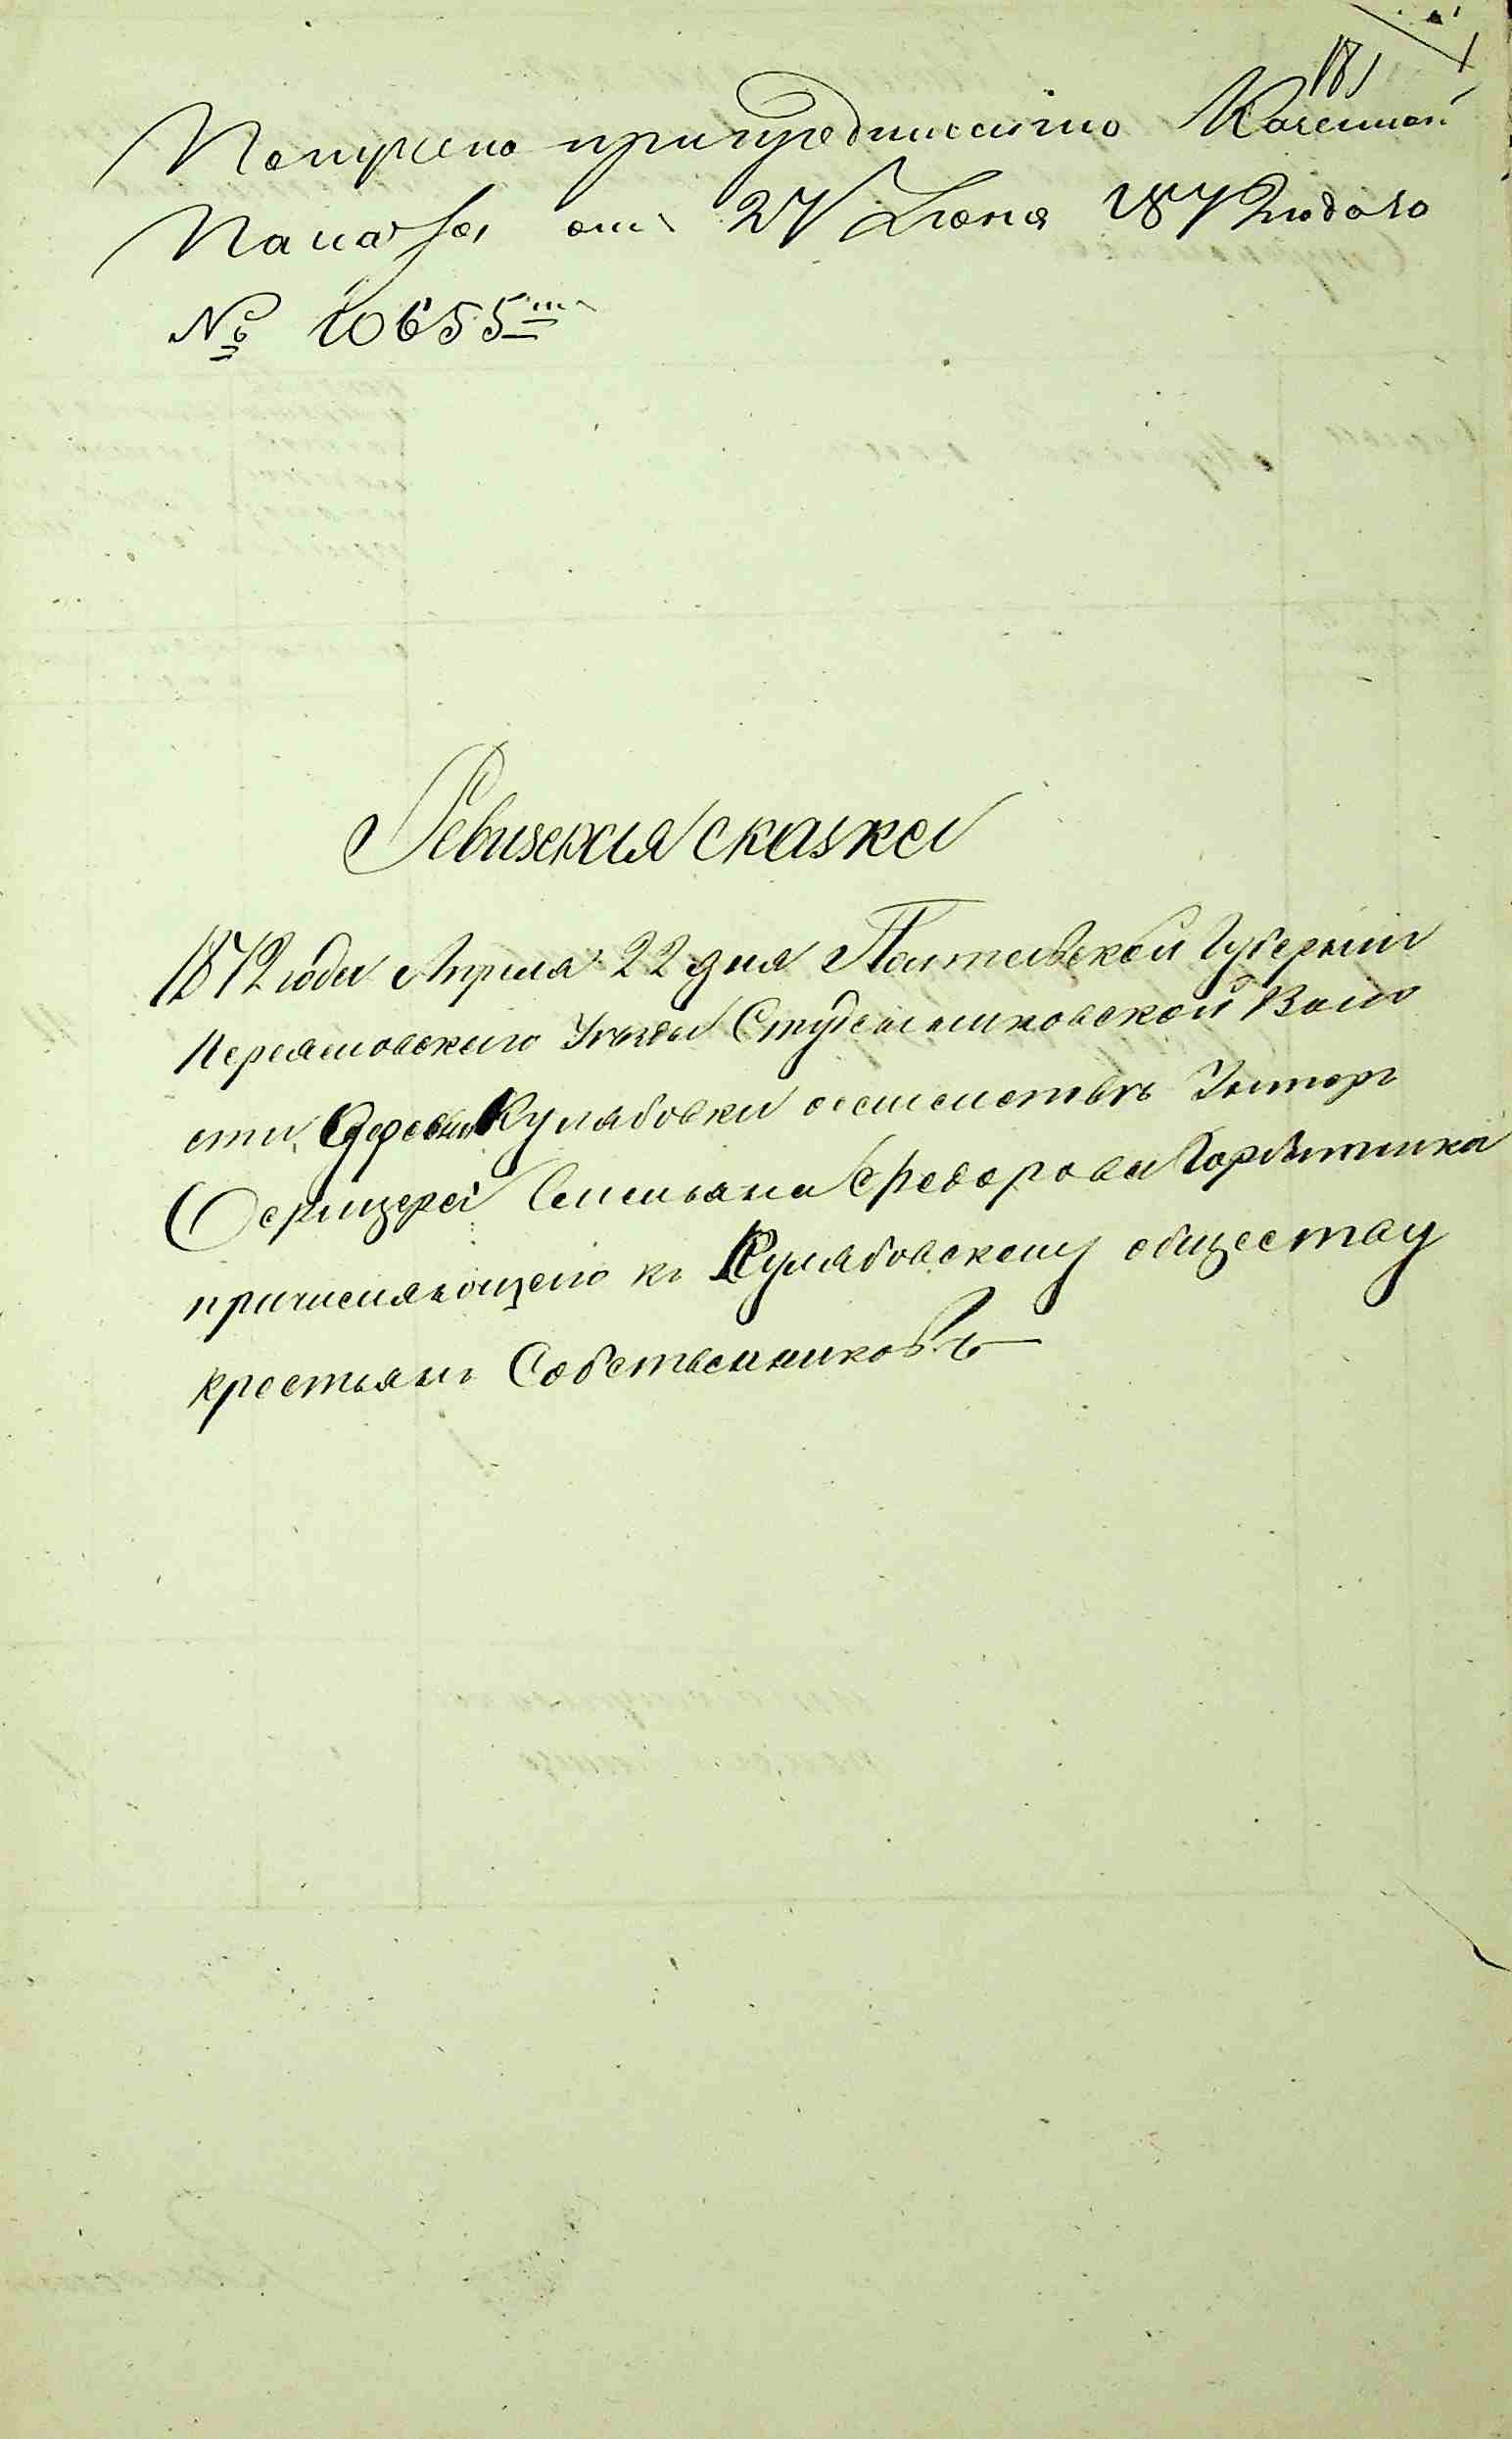 181
Получено припредписаніи Казенной
Палаты отъ 27 Іюня 1872 года за
№ 10655 мъ
Ревизская сказка
1872 года Апреля 22 дня Полтавской Губерніи
Переяславского Уезда Студениковской Воло
сти, деревни Кулябовки о семействе Унтеръ
Офицера Емельяна Федорова Горбатенка
причисляющего къ Кулябовскому обществу
крестьянъ Собственниковъ